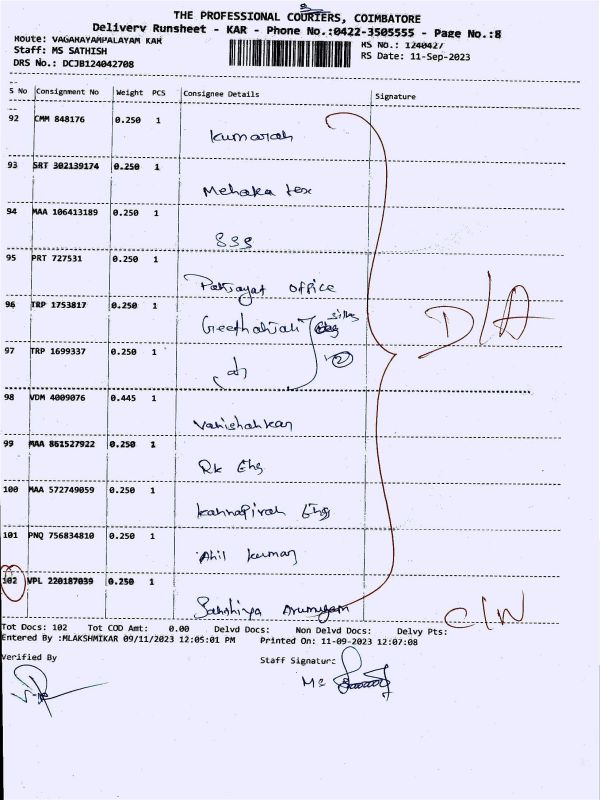 THE PROFESSIONAL COURIERS, COIMBATORE
Delivery Runsheet - KAR - Phone No.:0422-3505555 - Page No.:8
Route: VAGARAYAMPALAYAM KAR
RS No.: 1240427
Staff: MS SATHISH
RS Date: 11-Sep-2023
DRS No.: DCJB124042708
S No Consignment No Weight PCS Consignee Details Signature
92 CMM 848176 0.250 1
Kumaran
93 SRT 302139174 0.250 1
Mehaka tex
94 MAA 106413189 0.250 1
SSS
95 PRT 727531 0.250 1
office
96 TRP 1753817 0.250 1
Geethanjali
D/A
97 TRP 1699337 0.250 1
2
98 VDM 4009076 0.445 1
99 MAA 861527922 0.250 1
RK Eng
100 MAA 572749059 0.250 1
Eng
101 PNQ 756834810 0.250 1
Kumar
102 VPL 220187039 0.250 1
Arumugam
C/W
Tot Docs: 102 Tot COD Amt: 0.00 Delvd Docs: Non Delvd Docs: Delvy Pts:
Entered By :MLAKSHMIKAR 09/11/2023 12:05:01 PM Printed On: 11-09-2023 12:07:08
Verified By
Staff Signature: